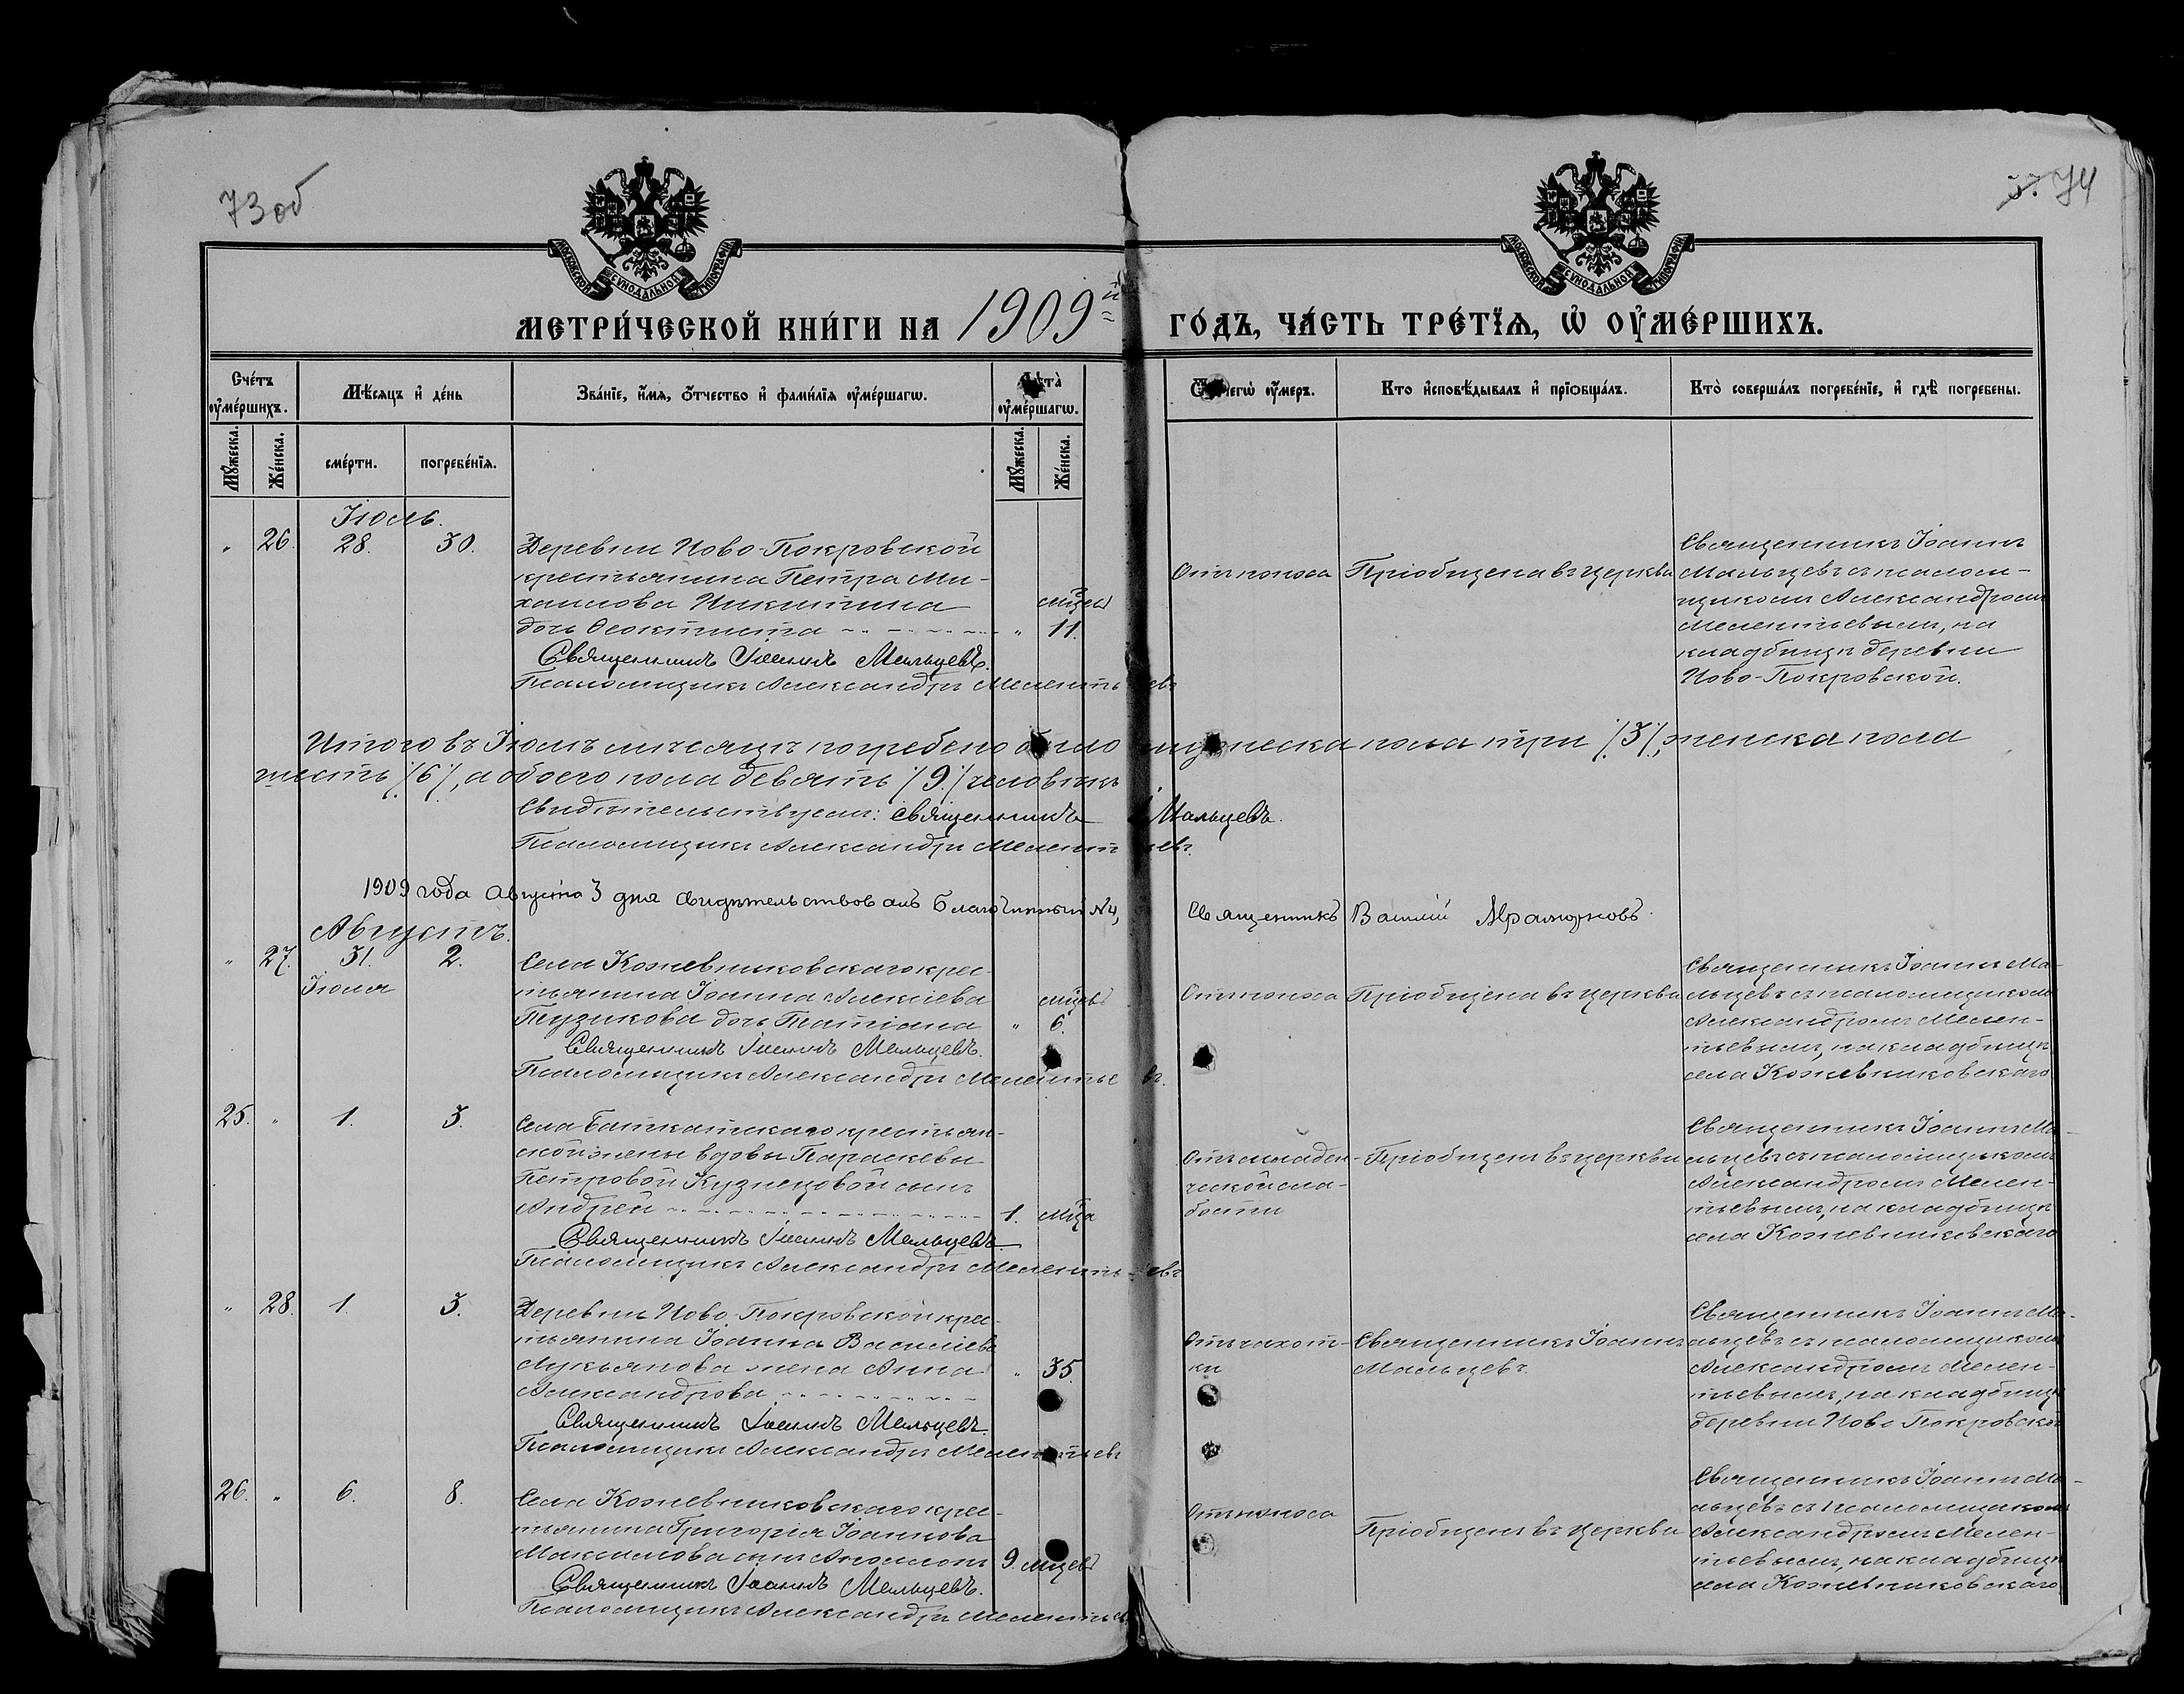 73 об
3. 74
МОСКОВСКОЙ СѴНОДАЛЬНОЙ ТИПОГРАФІИ
МОСКОВСКОЙ СѴНОДАЛЬНОЙ ТИПОГРАФІИ
МЕТРИ́ЧЕСКОЙ КНИ́ГИ НА 1909й ГО́ДЪ, ЧА́СТЬ ТРЕ́ТЇѦ, Ѡ҆ ОУ҆МЕ́РШИХЪ.
Сче́тъ оу҆ме́ршихъ.
Мѣ́сяцъ и҆ де́нь
Зва́нїе, и҆́мя, ѻ҆́тчество и҆ фами́лїя оу҆ме́ршагѡ.
Лѣта̀ оу҆ме́ршагѡ.
Ѿ чегѡ̀ оу҆́меръ.
Кто̀ и҆сповѣ́дывалъ и҆ прїѡбща́лъ.
Кто̀ соверша́лъ погребе́нїе, и҆ гдѣ̀ погребены.
Мꙋ́жеска.
Же́нска.
сме́рти.
погребе́нїя.
Мꙋ́жеска.
Же́нска.
Іюль.
" 26. 28. 30.
Деревни Ново-Покровской
крестьянина Петра Ми-
хаилова Никитина
дочь Ѳеоктиста
мцевъ
" 11.
Священникъ Іоаннъ Мальцевъ.
Псаломщикъ Александръ Мелентьевъ
Отъ поноса
Пріобщена въ церкви
Священникъ Іоаннъ
Мальцевъ съ псалом-
щикомъ Александромъ
Мелентьевымъ, на
кладбищѣ деревни
Ново-Покровской.
Итого въ Іюлѣ мѣсяцѣ погребено было мужеска пола три /3/, женска пола
шесть /6/, а обоего пола девять /9/ человѣкъ
Свидѣтельствуемъ: Священникъ І Мальцевъ.
Псаломщикъ Александръ Мелентьевъ.
1909 года Августа 3 дня свидѣтельствовалъ Благочинный №4, Священникъ Василій
Августъ.
" 27. 31. 2.
Іюля
Села Кожевниковскаго крес-
тьянина Іоанна Алексіева
Пузикова дочь Татіана
мцевъ
" 6.
Священникъ Іоаннъ Мальцевъ.
Псаломщикъ Александръ Мелентьевъ.
Отъ поноса
Пріобщена въ церкви
Священникъ Іоаннъ Ма-
льцевъ съ псаломщикомъ
Александромъ Мелен-
тьевымъ, на кладбищѣ
села Кожевниковскаго
25. " 1. 3.
Села Баткатскаго крестьян-
ской жены вдовы Параскевы
Петровой Кузнецовой сынъ
Андрей
1. мца
Священникъ Іоаннъ Мальцевъ.
Псаломщикъ Александръ Мелентьевъ
Отъ младен-
ческой сла-
бости
Пріобщенъ въ церкви
Священникъ Іоаннъ Ма-
льцевъ съ псаломщикомъ
Александромъ Мелен-
тьевымъ, на кладбищѣ
села Кожевниковскаго
" 28. 1. 3.
Деревни Ново-Покровской крес-
тьянина Іоанна Василіева
Лукьянова жена Анна
Александрова
" 35.
Священникъ Іоаннъ Мальцевъ.
Псаломщикъ Александръ Мелентьевъ
Отъ чахот-
ки
Священникъ Іоаннъ
Мальцевъ.
Священникъ Іоаннъ Ма-
льцевъ съ псаломщикомъ
Александромъ Мелен-
тьевымъ, на кладбищѣ
деревни Ново Покровской
26. " 6. 8.
Села Кожевниковскаго крес-
тьянина Григорія Іоаннова
Максимова сынъ
9. мцевъ
Священникъ Іоаннъ Мальцевъ.
Псаломщикъ Александръ Мелентьевъ
Отъ поноса
Пріобщенъ въ церкви
Священникъ Іоаннъ Ма-
льцевъ съ псаломщикомъ
Александромъ Мелен-
тьевымъ, на кладбищѣ
села Кожевниковскаго